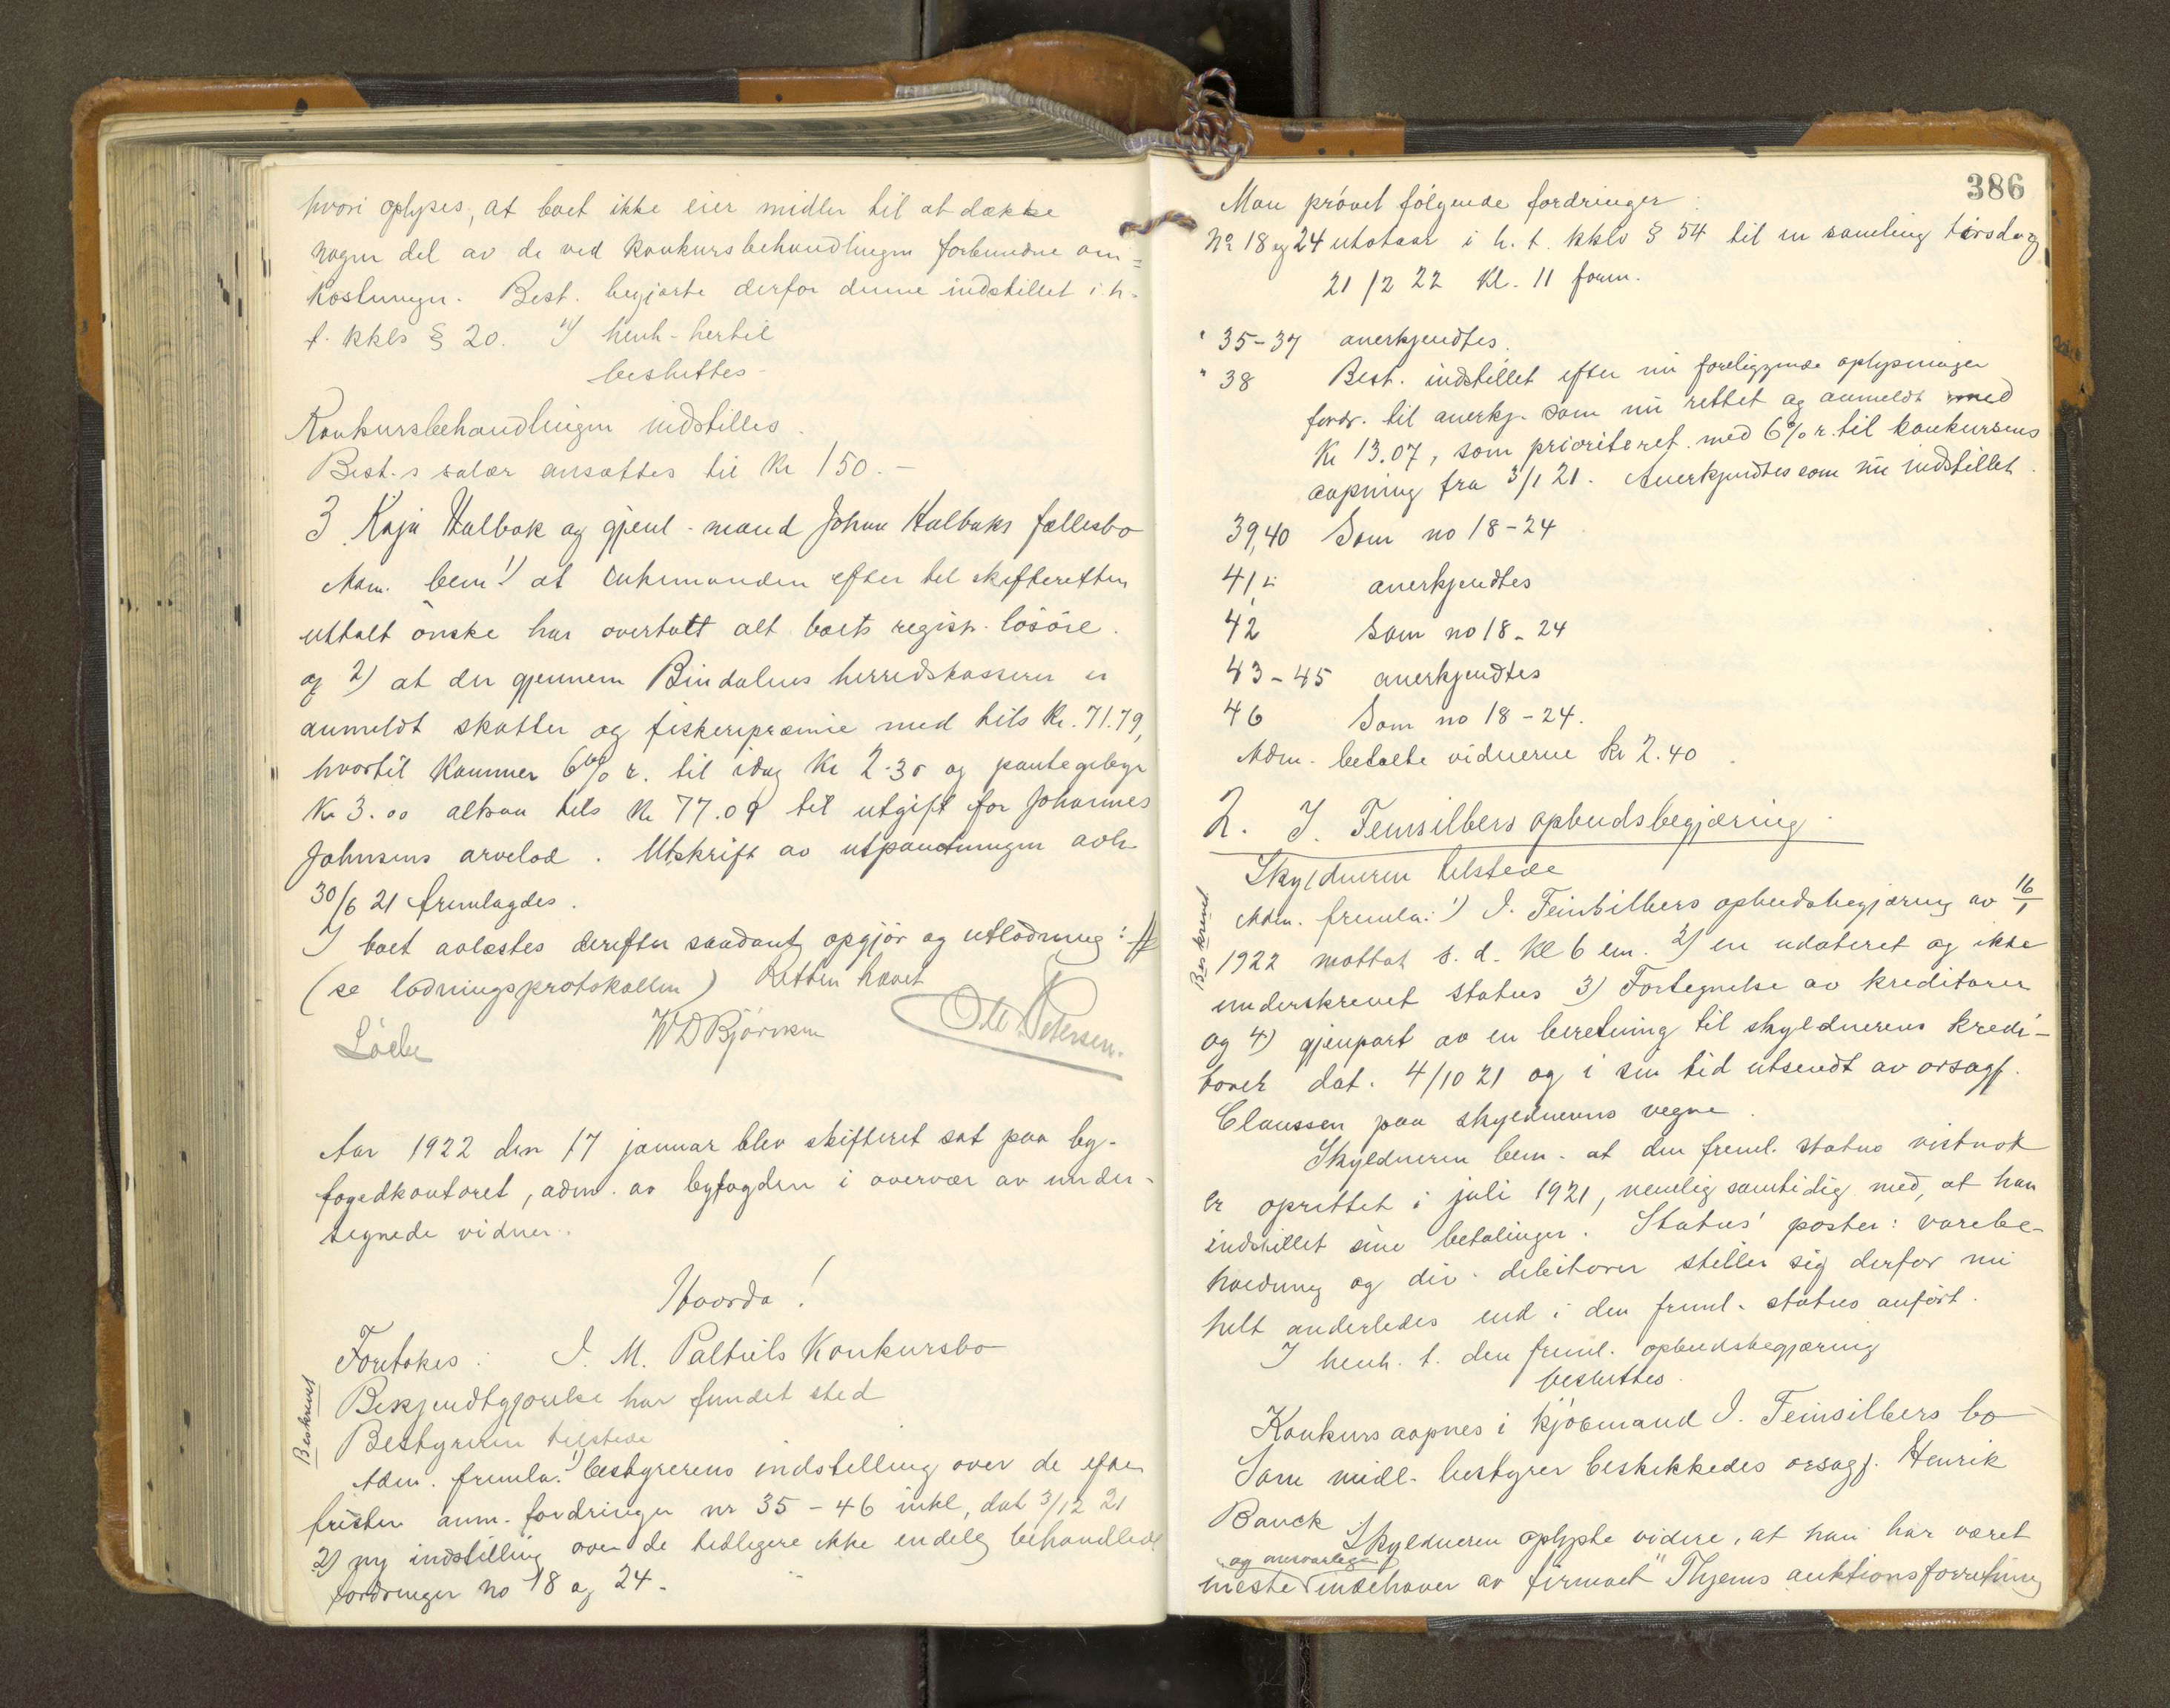 hvori oplyses, at boet ikke eier midler til at dække
nogen del av de ved konkursbehandlingen forbundne om=
kostninger. Best. begjærte derfor denne indstillet i h.
t. kkls § 20. I henh. hertil
besluttes
Konkursbehandlingen indstilles.
Best.s salær ansættes til Kr 150.-
3 Kaja Halbak og gjenl. mand Johan Halbaks fællesbo
Adm. bem. 1) at enkemanden efter til skifteretten
uttalt önske har overtatt alt boets regist. lösöre.
og 2) at der gjennem Bindalens herredskasserer er
anmeldt skatter og fiskeripræmie med tils Kr. 71.79,
hvortil kommer 6% r. til idag Kr 2.30 og pantegebyr
Kr 3.00 altsaa tils Kr 77.09 til utgift for Johannes
Johnsens arvelod. Utskrift av utpantningen avh.
30/6 21 fremlagdes.
I boet avlæstes derefter saadant opgjör og utlodning:
(se lodningsprotokollen) Retten hævet
W D Björnson
Ole Petersen.
Aar 1922 den 17 januar blev skifteret sat paa by-
fogedkontoret, adm. av byfogden i overvær av under-
tegnede vidner.
Hvorda!
Foretokes: I. M. Paltiels Konkursbo
Beskrevet
Bekjendtgjörelse har fundet sted
Bestyreren tilstede
Adm. fremla: 1) bestyrerens indstilling over de efter
fristen anm. fordringer nr 35-46 inkl, dat 3/12 21
2) ny indstilling over de tidligere ikke endelig behandlede
fordringer no 18 og 24.
386
Man prövet fölgende fordringer:
No 18 og 24 utstaar i h. t. kklo § 54 til en samling tirsdag
21/2 22 Kl. 11 form.
" 35-37 anerkjendtes.
" 38 Best. indstillet efter nu foreliggende oplysninger
fordr. til anerkj. som nu rettet og anmeldt med
Kr 13.07, som prioriteret med 6% r. til konkursens
aapning fra 3/1 21. Anerkjendtes som nu indstillet.
39,40 Som no 18-24
41 anerkjendtes
42 Som no 18-24
43-45 anerkjendtes
46 Som no 18-24.
Adm. betalte vidnerne Kr 2.40.
2. I. Feinsilbers opbudsbegjæring.
Skyldneren tilstede
Beskrevet
Adm. fremla: 1) I. Feinsilbers opbudsbegjæring av 16/1
1922 mottat s. d. Kl 6 em. 2) en udateret og ikke
underskrevet status 3) Fortegnelse av kreditorer
og 4) gjenpart av en beretning til skyldnerens kredi-
torer dat. 4/10 21 og i sin tid utsendt av orsagf.
Claussen paa skyldnerens vegne.
Skyldneren bem. at den freml. status vistnok
er oprettet i juli 1921, nemlig samtidig med, at han
indstillet sine betalinger. Status' poster: varebe-
holdning og div. debitorer stiller sig derfor nu
helt anderledes end i den freml. status anfört.
I henh. t. den freml. opbudsbegjæring
besluttes.
Konkurs aapnes i kjöbmand I. Feinsilbers bo
Som midl. bestyrer beskikkedes orsagf. Henrik
Banck
Skyldneren oplyste videre, at han har været
og ansvarlige
indehaver av firmaet "Thjems auktionsforretning